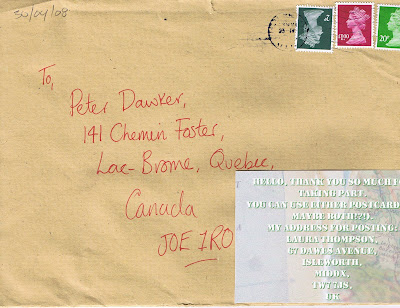 30/04/08
To,
Peter Dawker,
141 Chemin Foster,
Lac-Brome, Quebec,
Canada
JOE 1RO
£1.00
20P
HELLO, THANK YOU SO MUCH TO
TAKING PART.
YOU CAN USE EITHER POSTCARD
MAYBE BOTH!?!).
MY ADDRESS FOR POSTING:
LAURA THOMPSON,
67 DAWES AVENUE,
ISLEWORTH,
MIDDX,
TW7 LJS,
UK